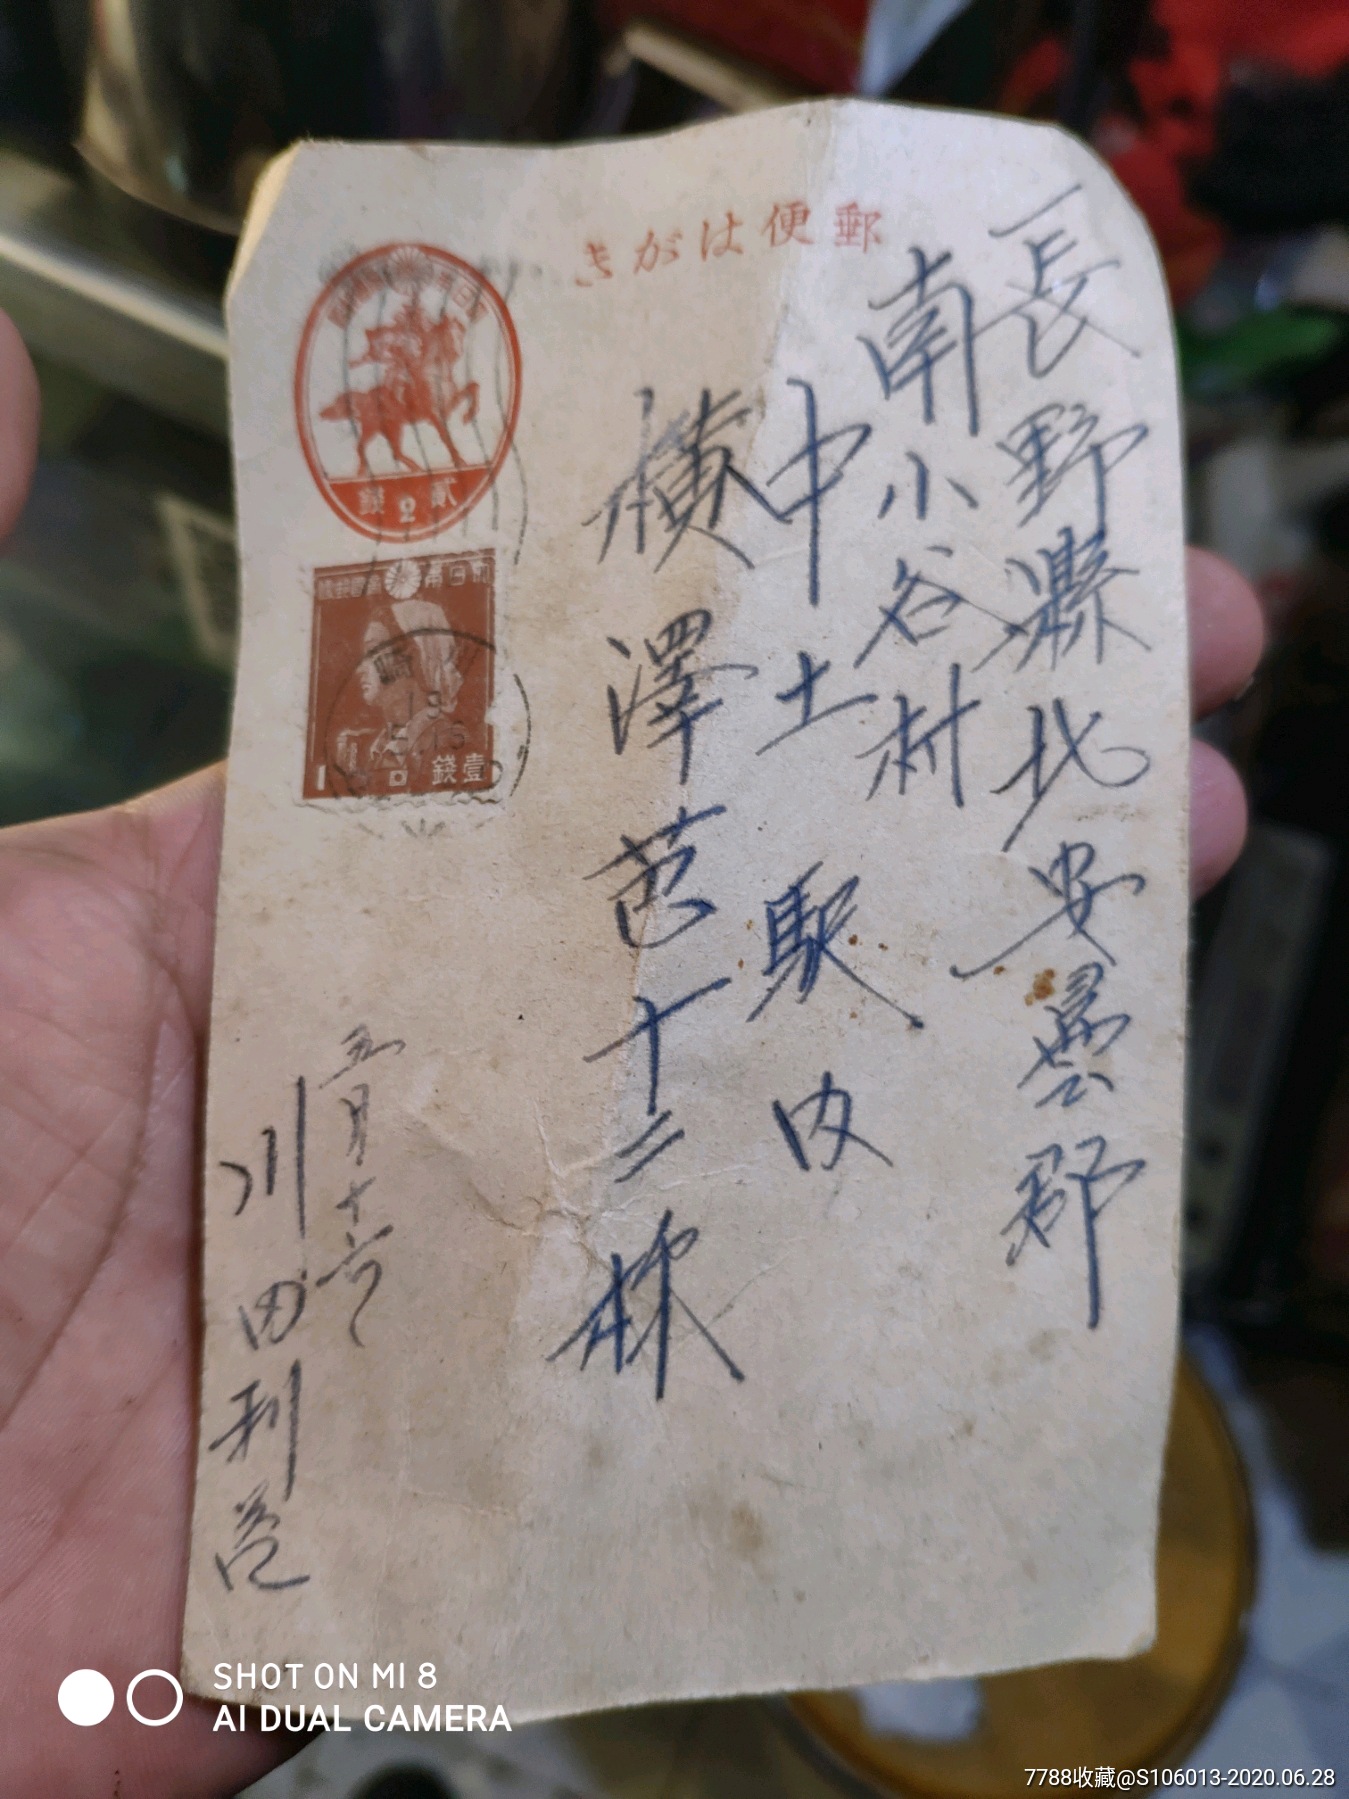 郵便はがき
長野縣北安曇郡
南小谷村
中土駅内
橫澤芭十二様
五月十六
川田利
大日本帝國郵便
貳2錢
大日本帝國郵便
1 壹錢
崎
19
5.15
SHOT ON MI 8
AI DUAL CAMERA
7788收藏@S106013-2020.06.28